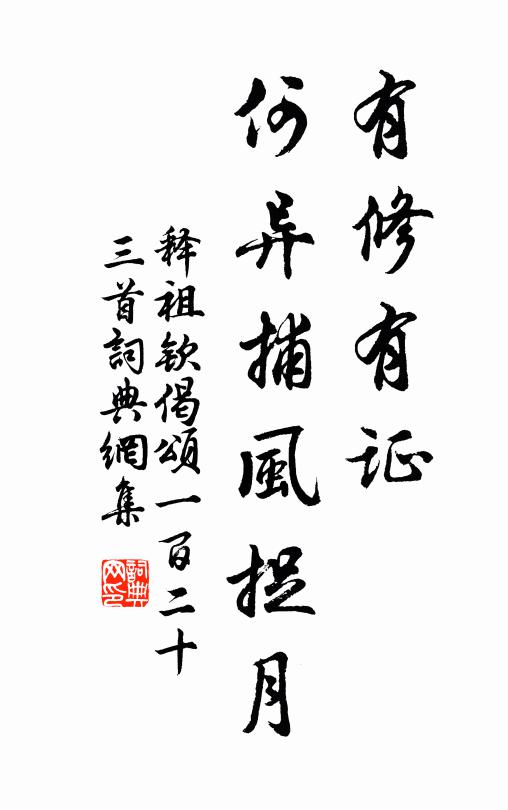 有修有证
何异捕風捉月
释祖钦偈頌一百二十
三首詞典網集
詞典
网印